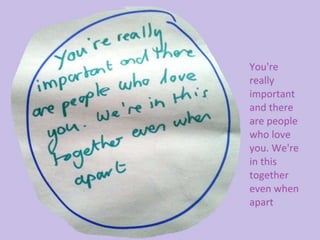 You're really
important and there
are people who love
you. We're in this
together even when
apart
You're
really
important
and there
are people
who love
you. We're
in this
together
even when
apart